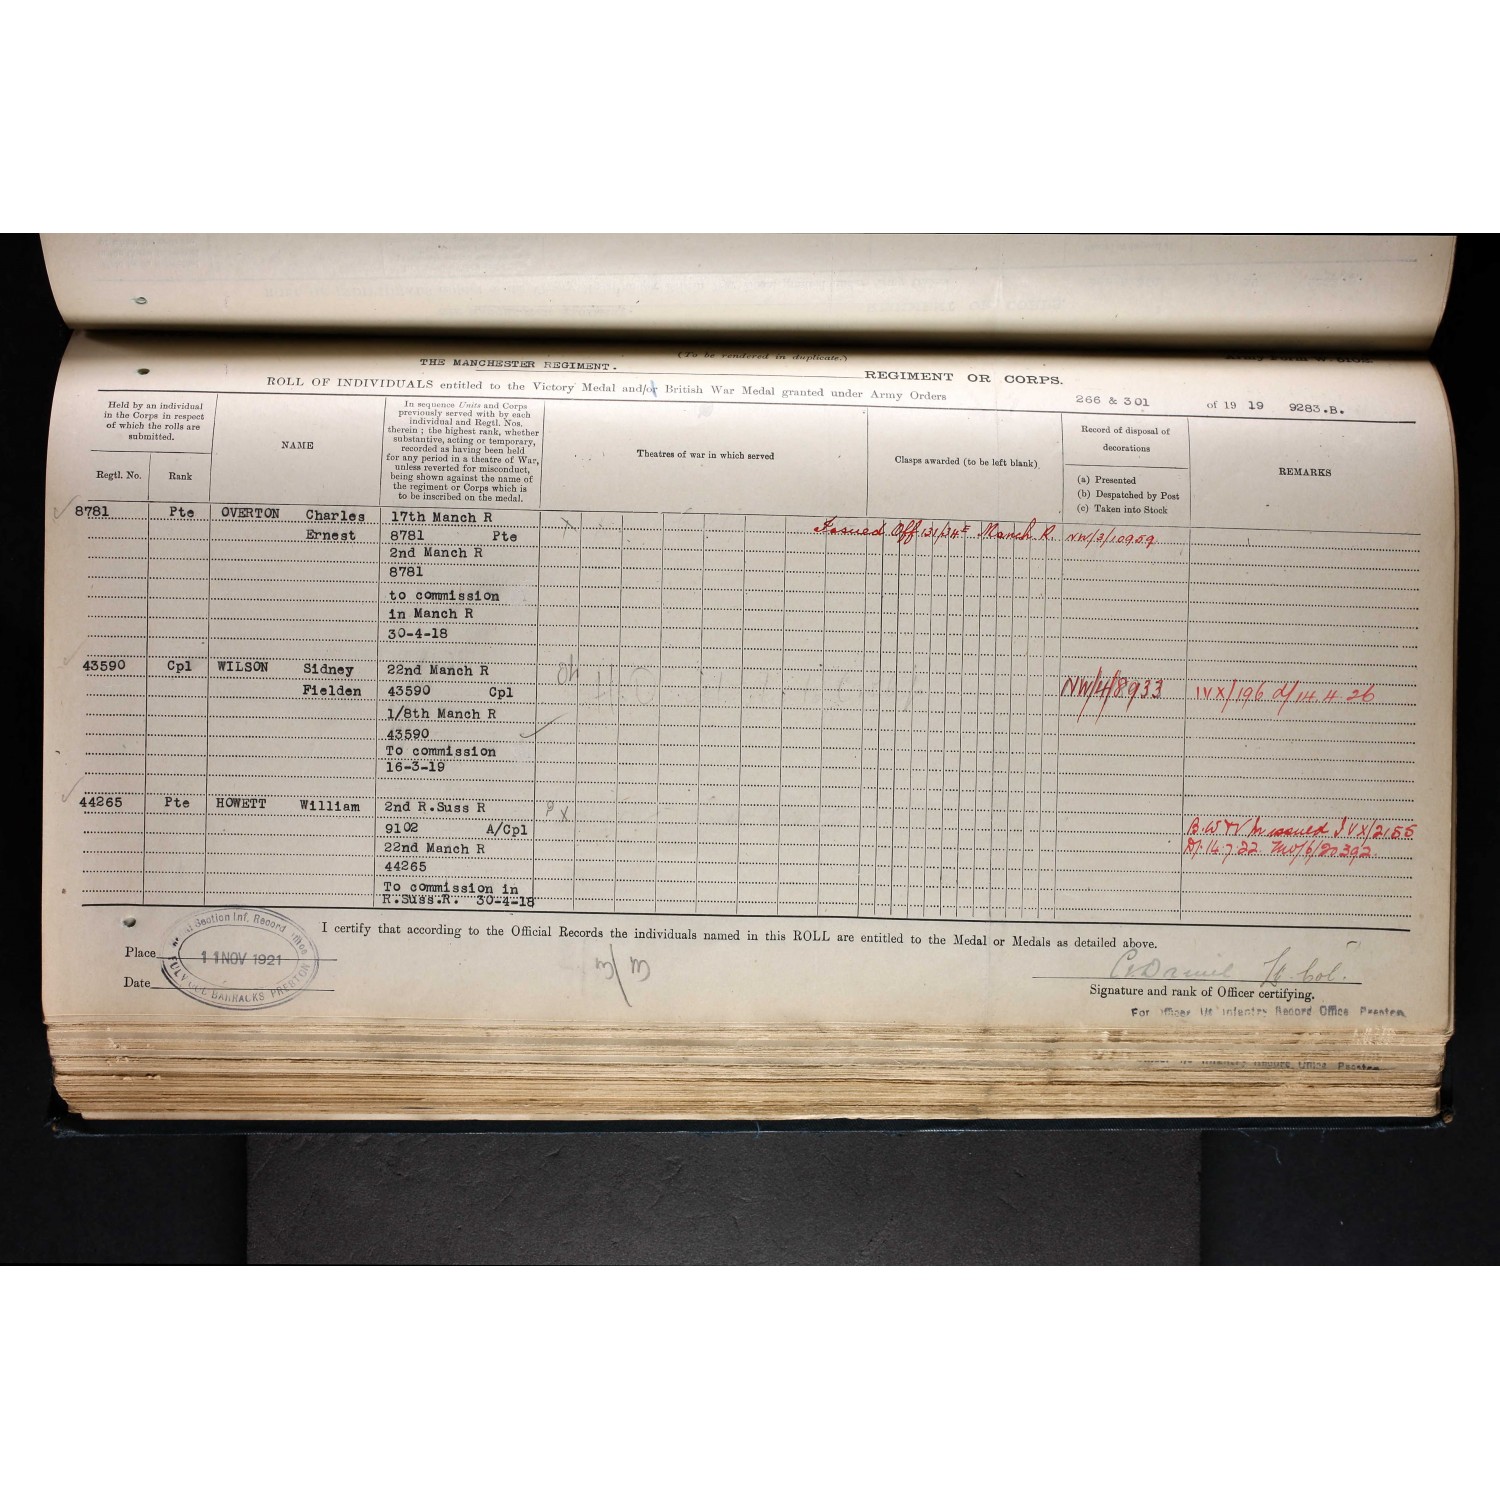 (To be rendered in duplicate.)
THE MANCHESTER REGIMENT. REGIMENT OR CORPS.
ROLL OF INDIVIDUALS entitled to the Victory Medal and/or British War Medal granted under Army Orders 266 & 301 of 19 19 9283.B.
Held by an individual
in the Corps in respect
of which the rolls are
submitted.
Regtl. No. Rank
NAME
In sequence Units and Corps
previously served with by each
individual and Regtl. Nos.
therein ; the highest rank, whether
substantive, acting or temporary,
recorded as having been held
for any period in a theatre of War,
unless reverted for misconduct,
being shown against the name of
the regiment or Corps which is
to be inscribed on the medal.
Theatres of war in which served
Clasps awarded (to be left blank)
Record of disposal of
decorations
(a) Presented
(b) Despatched by Post
(c) Taken into Stock
REMARKS
8781 Pte OVERTON Charles 17th Manch R
Ernest 8781 Pte Issued Off 131/34E Manch R. NW/3/10959
2nd Manch R
8781
to commission
in Manch R
30-4-18
43590 Cpl WILSON Sidney 22nd Manch R
Fielden 43590 Cpl NW/4/8933 IVX/196 d/14.4.26
1/8th Manch R
43590
To commission
16-3-19
44265 Pte HOWETT William 2nd R.Suss R
9102 A/Cpl B.W & V M issued IVX/2155
22nd Manch R D/14.7.22 NW/6/20392
44265
To commission in
R.Suss.R. 30-4-18
I certify that according to the Official Records the individuals named in this ROLL are entitled to the Medal or Medals as detailed above.
Place
Date
Section Inf. Record Office
11 NOV 1921
BARRACKS PRESTON
Lt. Col.
Signature and rank of Officer certifying.
For Officer I/c Infantry Record Office Preston